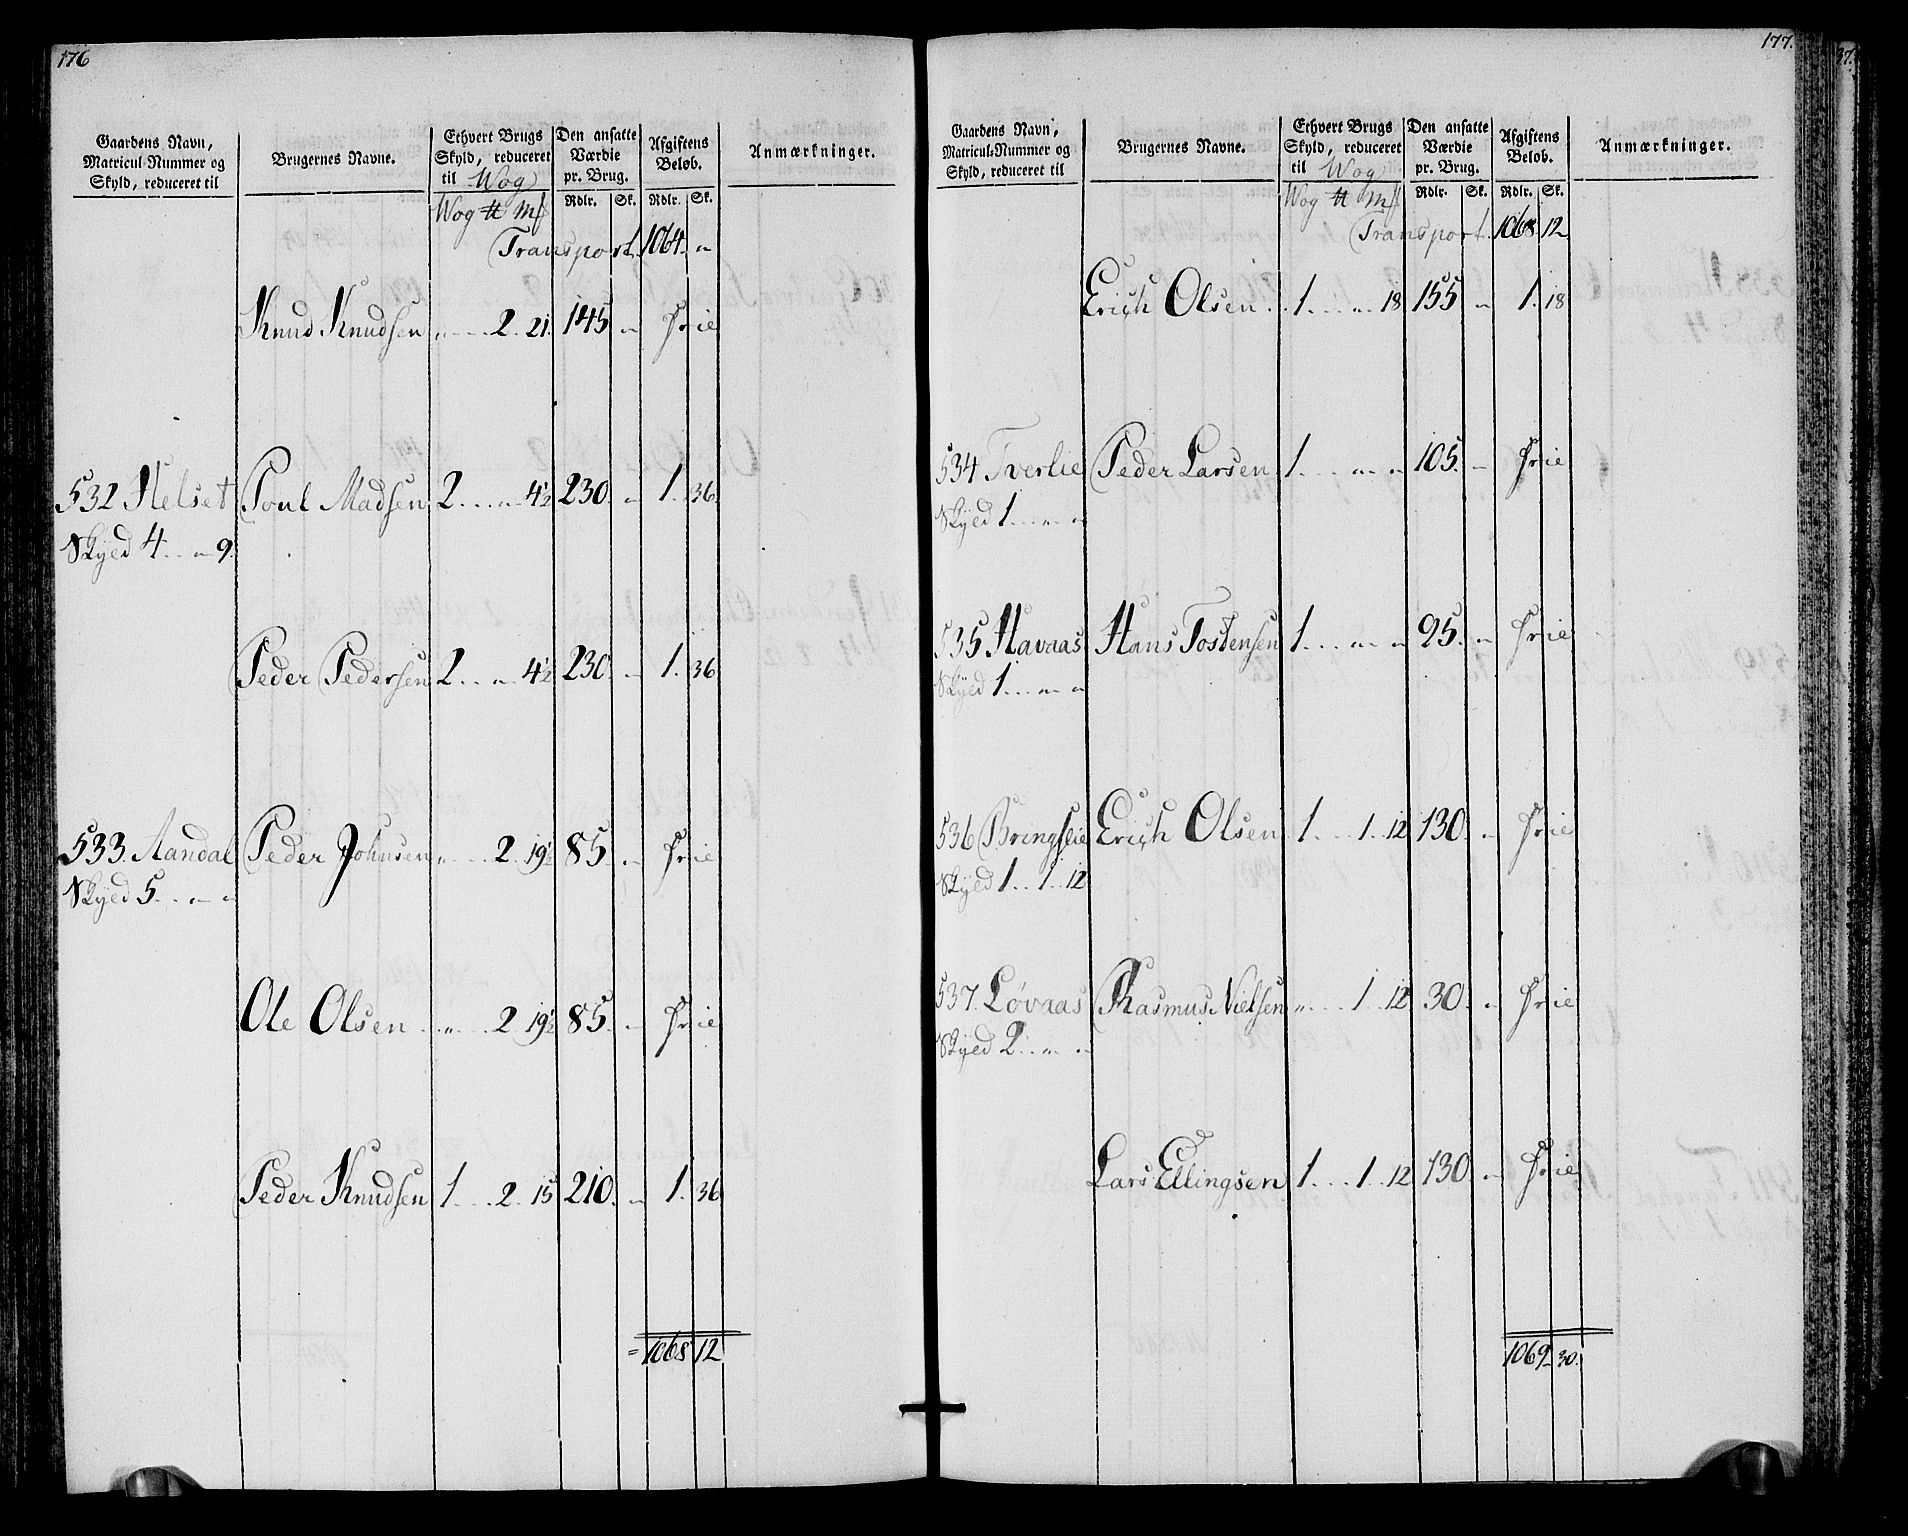 176
Gaardens Navn,
Matricul-Nummer og
Skyld, reduceret til
Brugernes Navne.
Ethvert Brugs
Skyld, reduceret
til Wog
Den ansatte
Værdie
pr. Brug.
Afgiftens
Beløb.
Anmærkninger.
Wog ℔ Mk Rdlr. Sk. Rdlr. Sk.
Transport. 1064. "
Knud Knudsen " . . . 2 . 21. 145 " frie
532 Helset Poul Madsen 2 . . . " . 4½ 230. " 1. 36
Skyld 4 . . " 9.
Peder Pedersen 2 . . . " . 4½ 230 " 1. 36
533. Aandal Peder Johnsen " . . . 2 . 19½ 85. " frie
Skyld 5 . . " . "
Ole Olsen . . " . . . 2 19½ 85. " frie
Peder Knudsen 1 . . . 2 . 15 210. " 1. 36
= 1068 12
177.
Gaardens Navn,
Matricul-Nummer og
Skyld, reduceret til
Brugernes Navne.
Ethvert Brugs
Skyld, reduceret
til Wog
Den ansatte
Værdie
pr. Brug.
Afgiftens
Beløb.
Anmærkninger.
Wog ℔ Mk Rdlr. Sk. Rdlr. Sk.
Transport. 1068. 12
Erich Olsen . . 1 . . . " . 18 155 " 1. 18
534 Tverlie Peder Larsen 1 . . . " . " 105. " frie
Skyld 1 . . . " . "
535 Havaas Hans Tostensen 1 . . . " . " 95. " frie
Skyld 1 . . . " . "
536 Bringslie Erich Olsen 1 . . . 1 . 12 130. " frie
Skyld 1 . . 1 . . 12
537. Løvaas Rasmus Nielsen " . . . 1 . 12 30. " frie
Skyld 2 . . " . "
Lars Ellingsen 1 . . . 1 . 12 130. " frie
1069 30.
37.